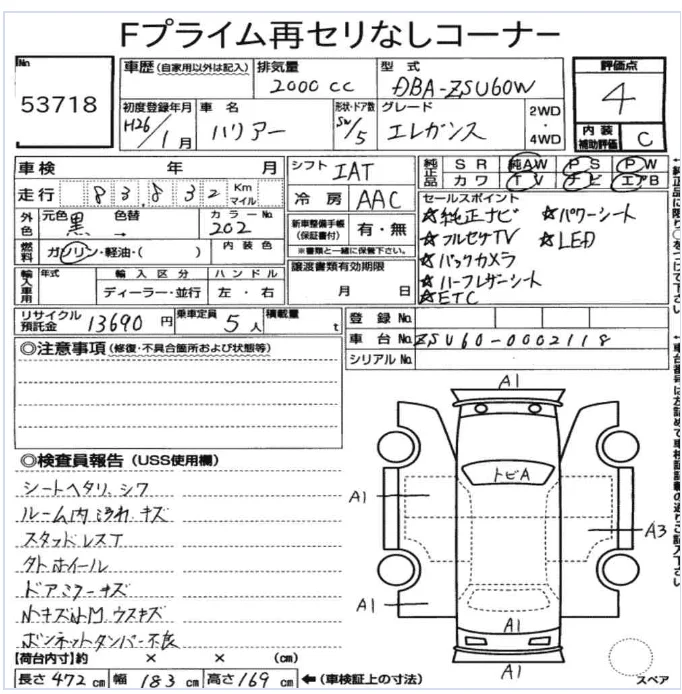 Fプライム再セリなしコーナー
No
53718
車歴 (自家用以外は記入)
排気量
2000 cc
型式
DBA-ZSU60W
評価点
4
内装
補助評価
C
初度登録年月
H26/1月
車名
ハリアー
形状・ドア数
SW/5
グレード
エレガンス
2WD
・
4WD
車検 年 月
シフト IAT
純正品
SR 純AW PS PW
カワ TV ナビ エアB
走行 83,832 Km マイル
冷房 AAC
セールスポイント
☆純正ナビ ☆パワーシート
☆フルセグTV ☆LED
☆バックカメラ
☆ハーフレザーシート
☆ETC
外色
元色 黒
色替 →
カラーNo. 202
新車整備手帳
(保証書付)
有・無
※書類と一緒に保管下さい。
燃料
ガソリン・軽油・( )
内装色
譲渡書類有効期限
月 日
輸入車用
年式
輸入区分
ハンドル
ディーラー・並行
左・右
リサイクル預託金 13690 円
乗車定員 5 人
積載量 t
登録No.
車台No. ZSU60-0002118
シリアルNo.
◎注意事項 (修復・不具合箇所および状態等)
◎検査員報告 (USS使用欄)
シートヘタリ、シワ
ルーム内ヨゴレ、キズ
スタッドレスT
タトホイール
ドアミラーキズ
小キズ小凹、ウスキズ
ボンネットダンパー不良
A1
トビA
A1
A3
A1
A1
A1
スペア
【荷台内寸】約 × × (cm)
長さ 472 cm 幅 183 cm 高さ 169 cm ←(車検証上の寸法)